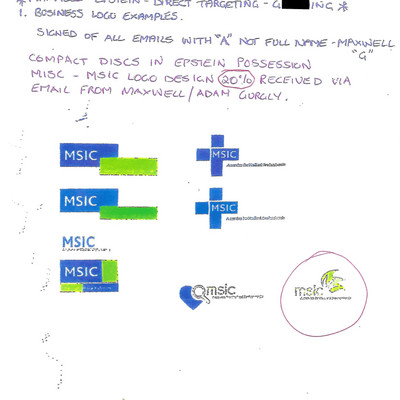 EPSTEIN - DIRECT TARGETING - G ING *
1. BUSINESS LOGO EXAMPLES.
SIGNED OF ALL EMAILS WITH "A" NOT FULL NAME - MAXWELL
"G"
COMPACT DISCS IN EPSTEIN POSSESSION
MISC - MSIC LOGO DESIGN 20% RECEIVED VIA
EMAIL FROM MAXWELL/ADAM
MSIC
MSIC
MSIC
MSIC
MSIC
MSIC
msic
msic